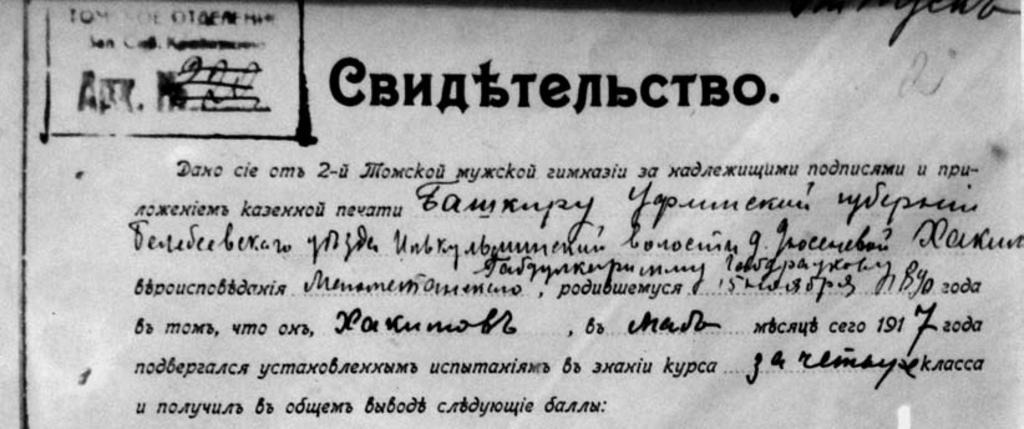 ТОМСКОЕ ОТДЕЛЕНИЕ
Арх. №
Свидѣтельство.
Дано сіе отъ 2-й Томской мужской гимназіи за надлежищими подписями и при-
ложеніемъ казенной печати Башкиру Уфимской губерніи
Белебеевскаго уѣзда Илькульминской волости д.
вѣроисповѣданія , родившемуся 15 ноября года
въ томъ, что онъ, Хакимовъ , въ маѣ мѣсяцѣ сего 1917 года
подвергался установленнымъ испытаніямъ въ знаніи курса за четыре класса
и получилъ въ общемъ выводѣ слѣдующіе баллы: